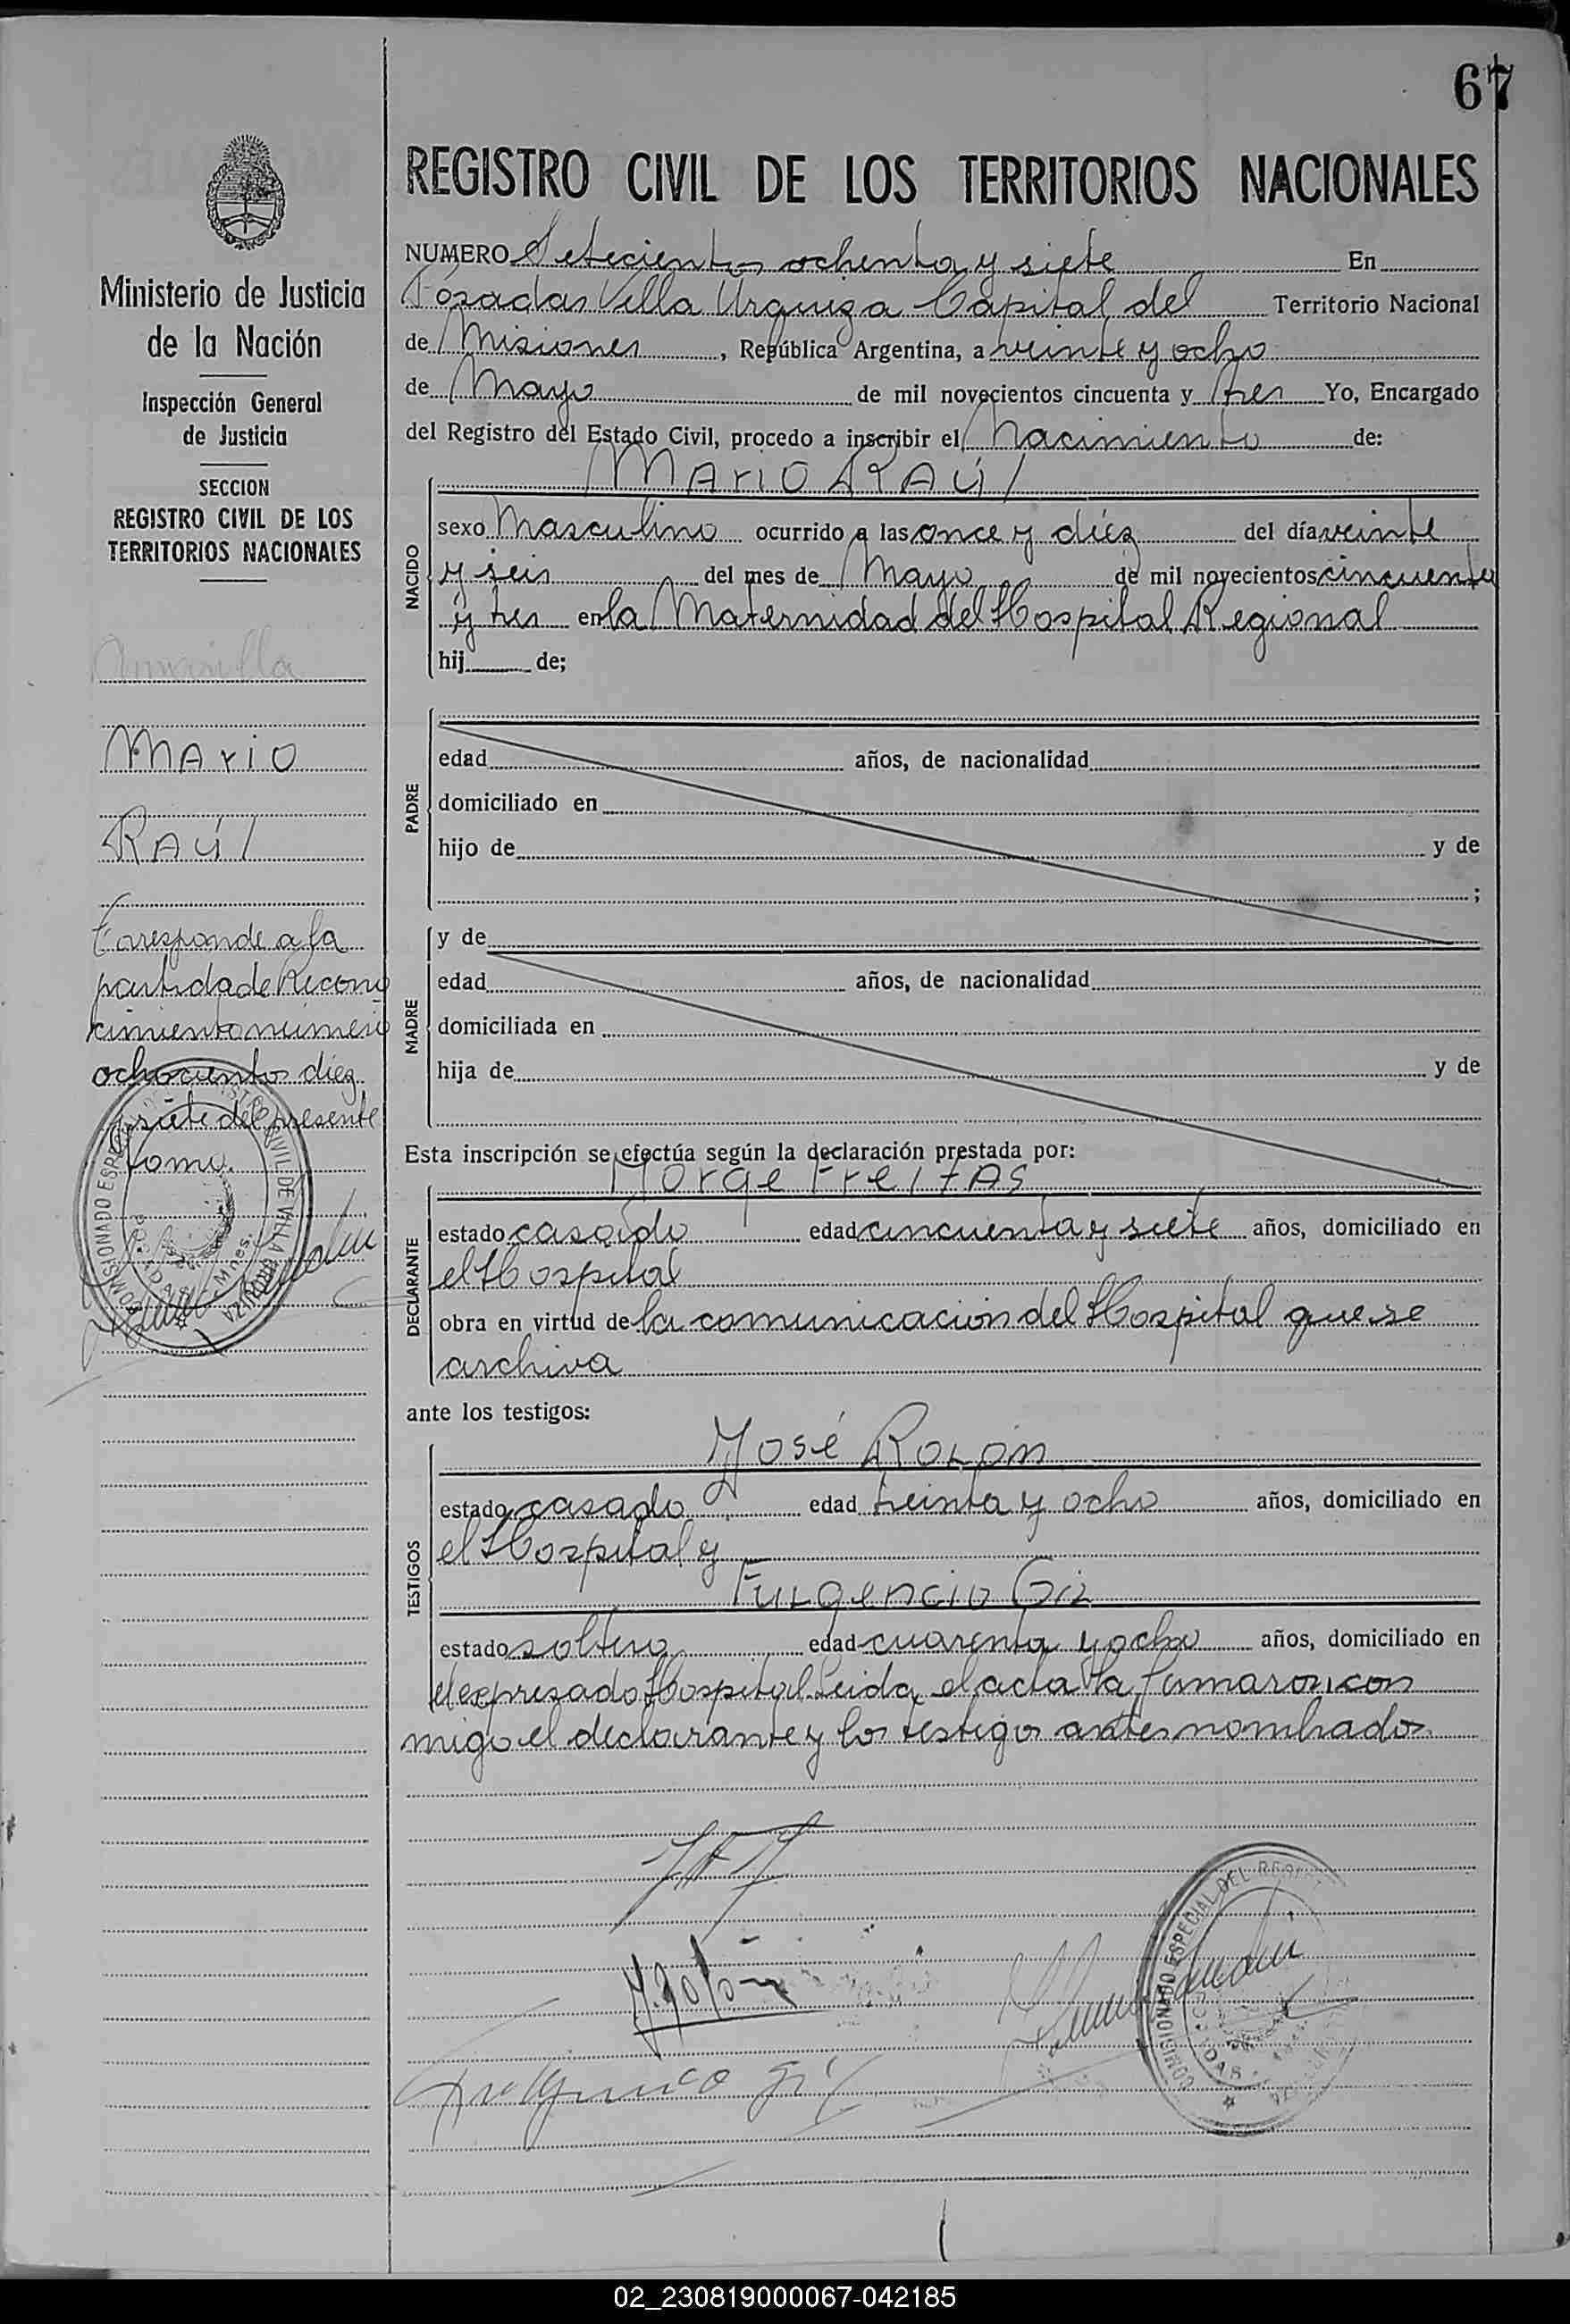 67
REGISTRO CIVIL DE LOS TERRITORIOS NACIONALES
Ministerio de Justicia
de la Nación
Inspección General
de Justicia
SECCION
REGISTRO CIVIL DE LOS
TERRITORIOS NACIONALES
MARIO
RAÚl
Coresponde a la
partida de Recono
cimiento número
ochociento diez
y siete del presente
Tomo.
NUMERO Setecientos ochenta y siete En
Posadas Villa Urquiza Capital del Territorio Nacional
de Misiones, República Argentina, a veinte y ocho
de Mayo de mil novecientos cincuenta y tres Yo, Encargado
del Registro del Estado Civil, procedo a inscribir el Nacimiento de:
MARIO RAÚl
NACIDO
sexo Masculino ocurrido a las once y diéz del día veinte
y seis del mes de Mayo de mil novecientos cincuenta
y tres en la Maternidad del Hospital Regional
hij de;
PADRE
edad años, de nacionalidad
domiciliado en
hijo de y de
;
MADRE
y de
edad años, de nacionalidad
domiciliada en
hija de y de
Esta inscripción se efectúa según la declaración prestada por:
Jorge Freitas
DECLARANTE
estado casado edad cincuenta y siete años, domiciliado en
el Hospital
obra en virtud de la comunicación del Hospital que se
archiva
ante los testigos:
TESTIGOS
José Rolón
estado casado edad treinta y ocho años, domiciliado en
el Hospital y
Fulgencio Gil
estado soltero edad cuarenta y ocho años, domiciliado en
el expresado Hospital. Leida el acta la firmaron con
migo el declarante y los testigos antes nombrados.
J. Rolón
Fulgencio Gil
COMISIONADO ESPECIAL DEL
02_230819000067-042185